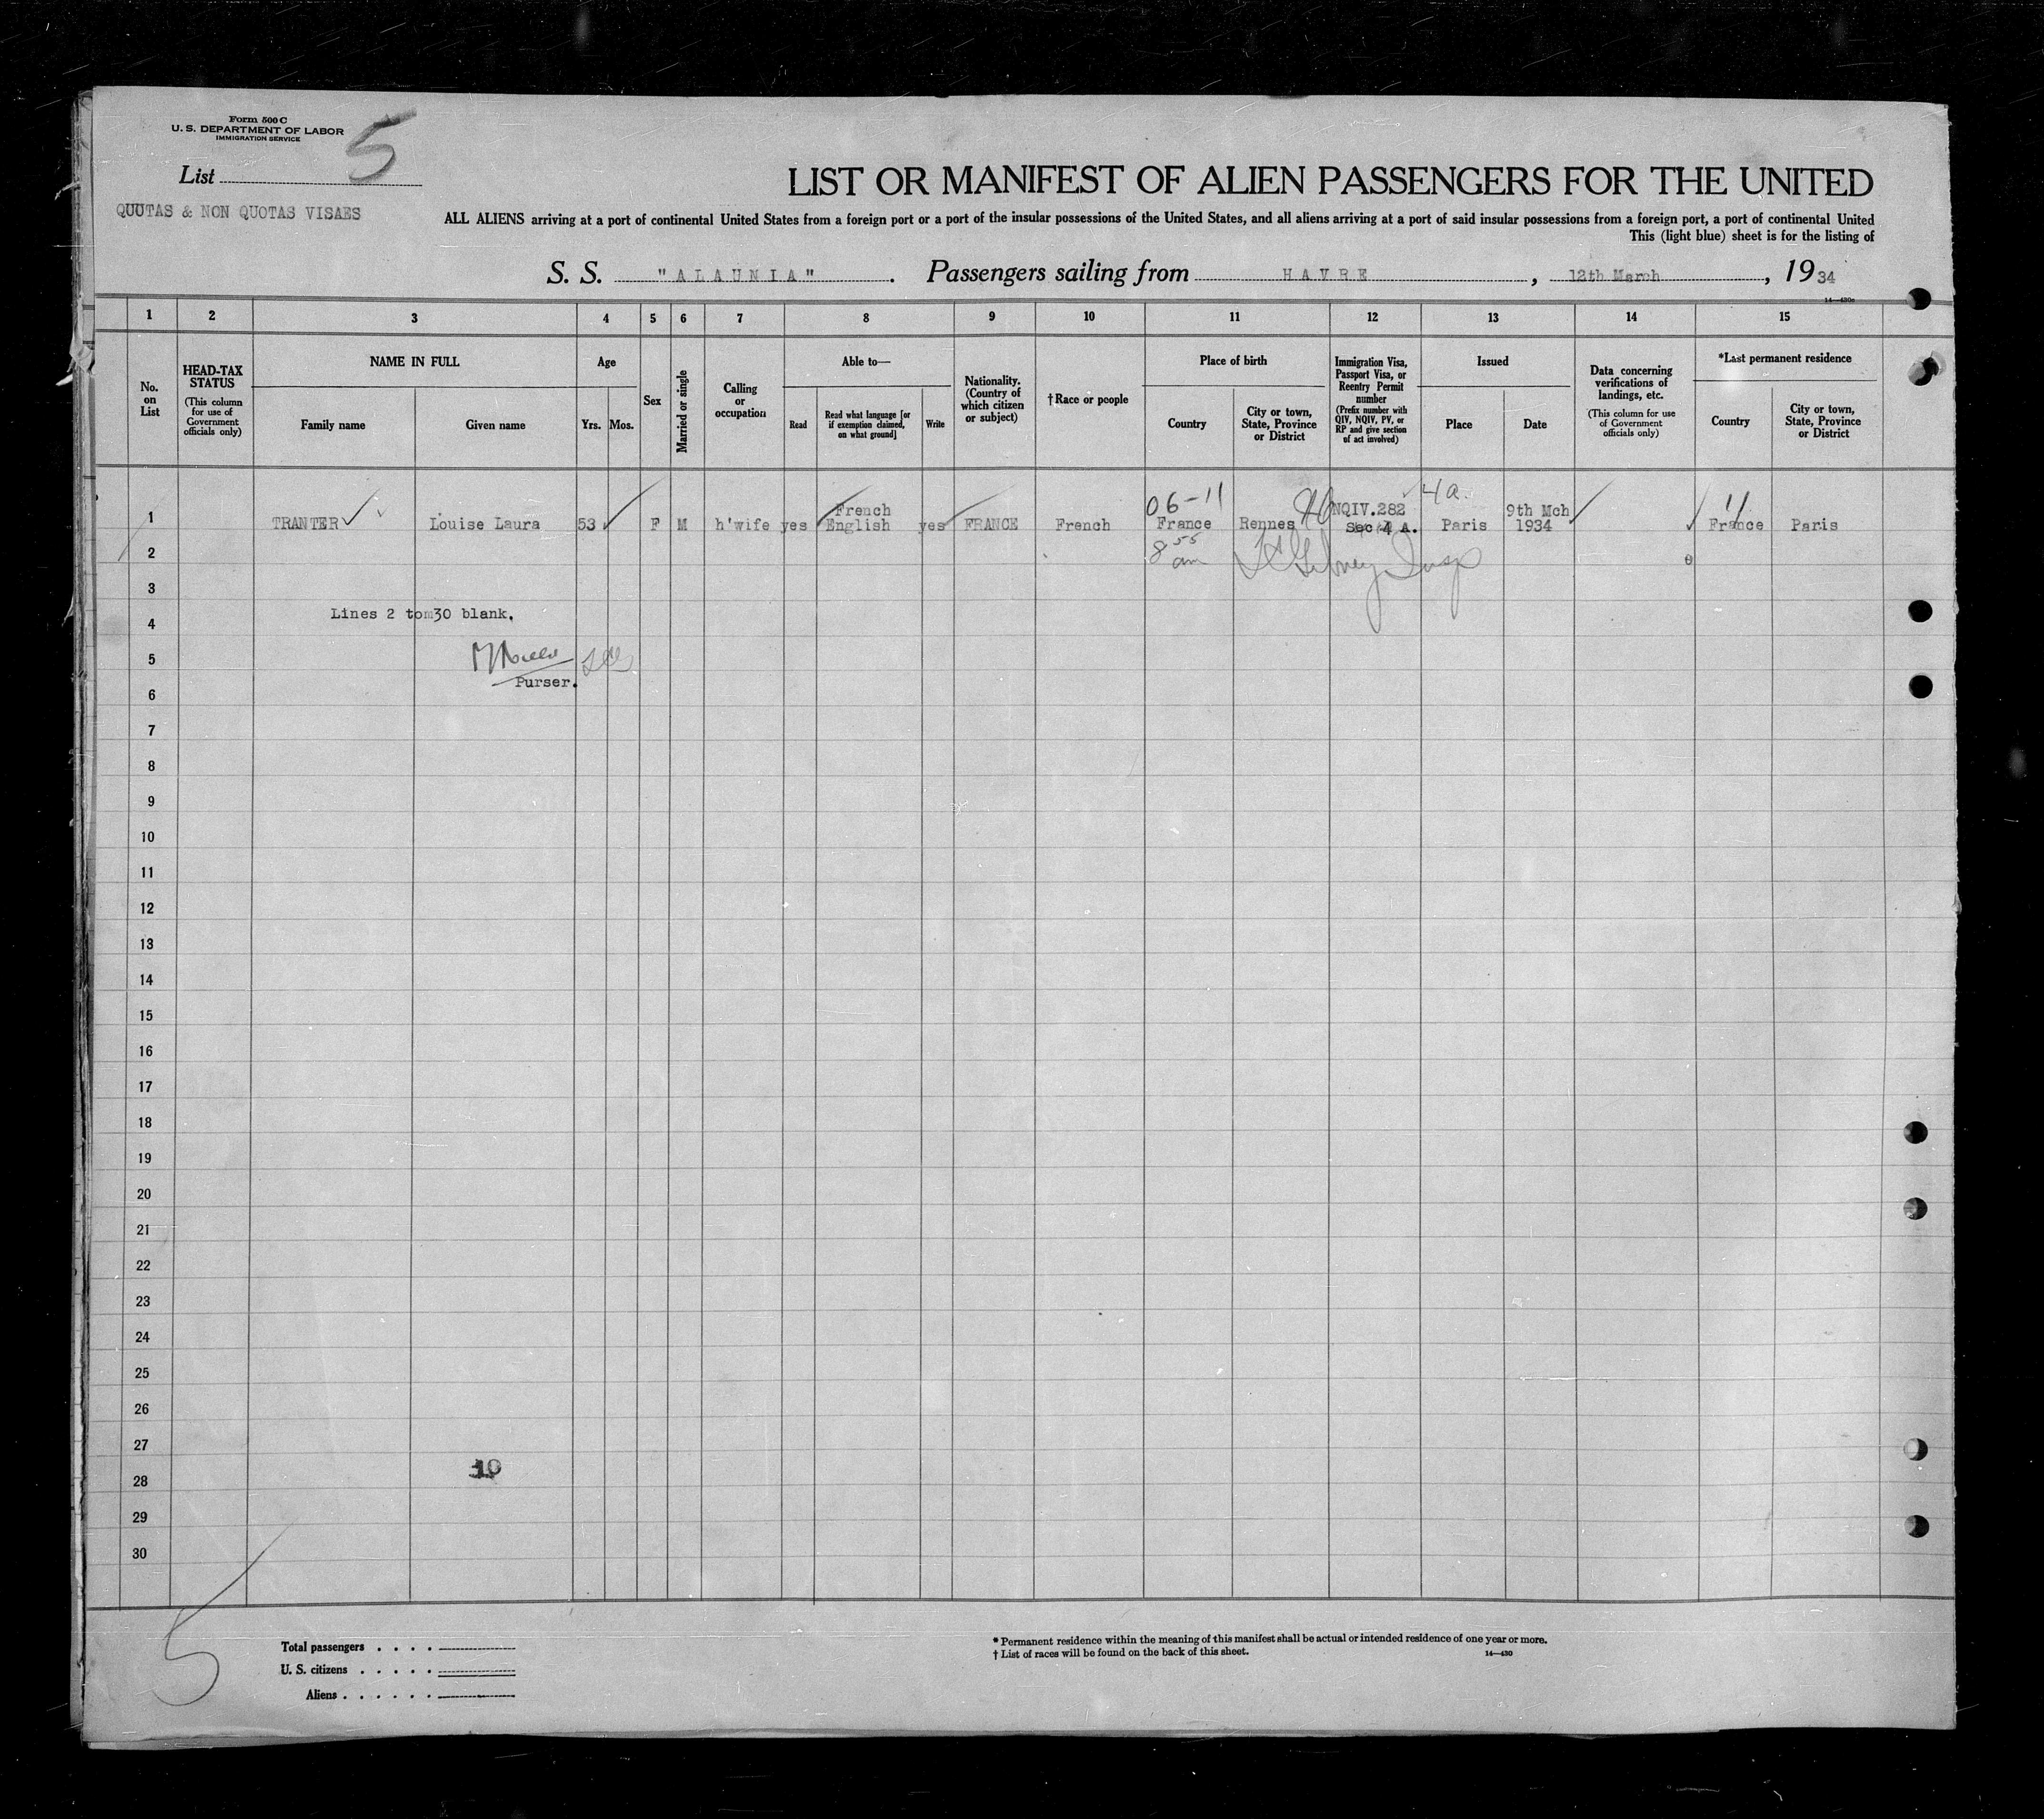 Form 500 C
U. S. DEPARTMENT OF LABOR
IMMIGRATION SERVICE
5
List
QUUTAS & NON QUOTAS VISAES
LIST OR MANIFEST OF ALIEN PASSENGERS FOR THE UNITED
ALL ALIENS arriving at a port of continental United States from a foreign port or a port of the insular possessions of the United States, and all aliens arriving at a port of said insular possessions from a foreign port, a port of continental United
This (light blue) sheet is for the listing of
S. S. "ALAUNIA". Passengers sailing from HAVRE, 12th March, 1934
14—430c
1 2 3 4 5 6 7 8 9 10 11 12 13 14 15
No. on List
HEAD-TAX STATUS (This column for use of Government officials only)
NAME IN FULL
Family name
Given name
Age
Yrs. Mos.
Sex
Married or single
Calling or occupation
Able to—
Read
Read what language [or if exemption claimed, on what ground]
Write
Nationality. (Country of which citizen or subject)
†Race or people
Place of birth
Country
City or town, State, Province or District
Immigration Visa, Passport Visa, or Reentry Permit number (Prefix number with QIV, NQIV, PV, or RP and give section of act involved)
Issued
Place
Date
Data concerning verifications of landings, etc. (This column for use of Government officials only)
*Last permanent residence
Country
City or town, State, Province or District
06-11 4a. 11
French NQIV.282 9th Mch
1 TRANTER Louise Laura 53 F M h'wife yes English yes FRANCE French France Rennes Sec 4 A. Paris 1934 France Paris
2 8 55 am
3
Lines 2 tom30 blank.
4
5
Purser.
6
7
8
9
10
11
12
13
14
15
16
17
18
19
20
21
22
23
24
25
26
27
10
28
29
30
5
Total passengers . . . .
U. S. citizens . . . . .
Aliens . . . . . .
* Permanent residence within the meaning of this manifest shall be actual or intended residence of one year or more.
† List of races will be found on the back of this sheet.
14—430